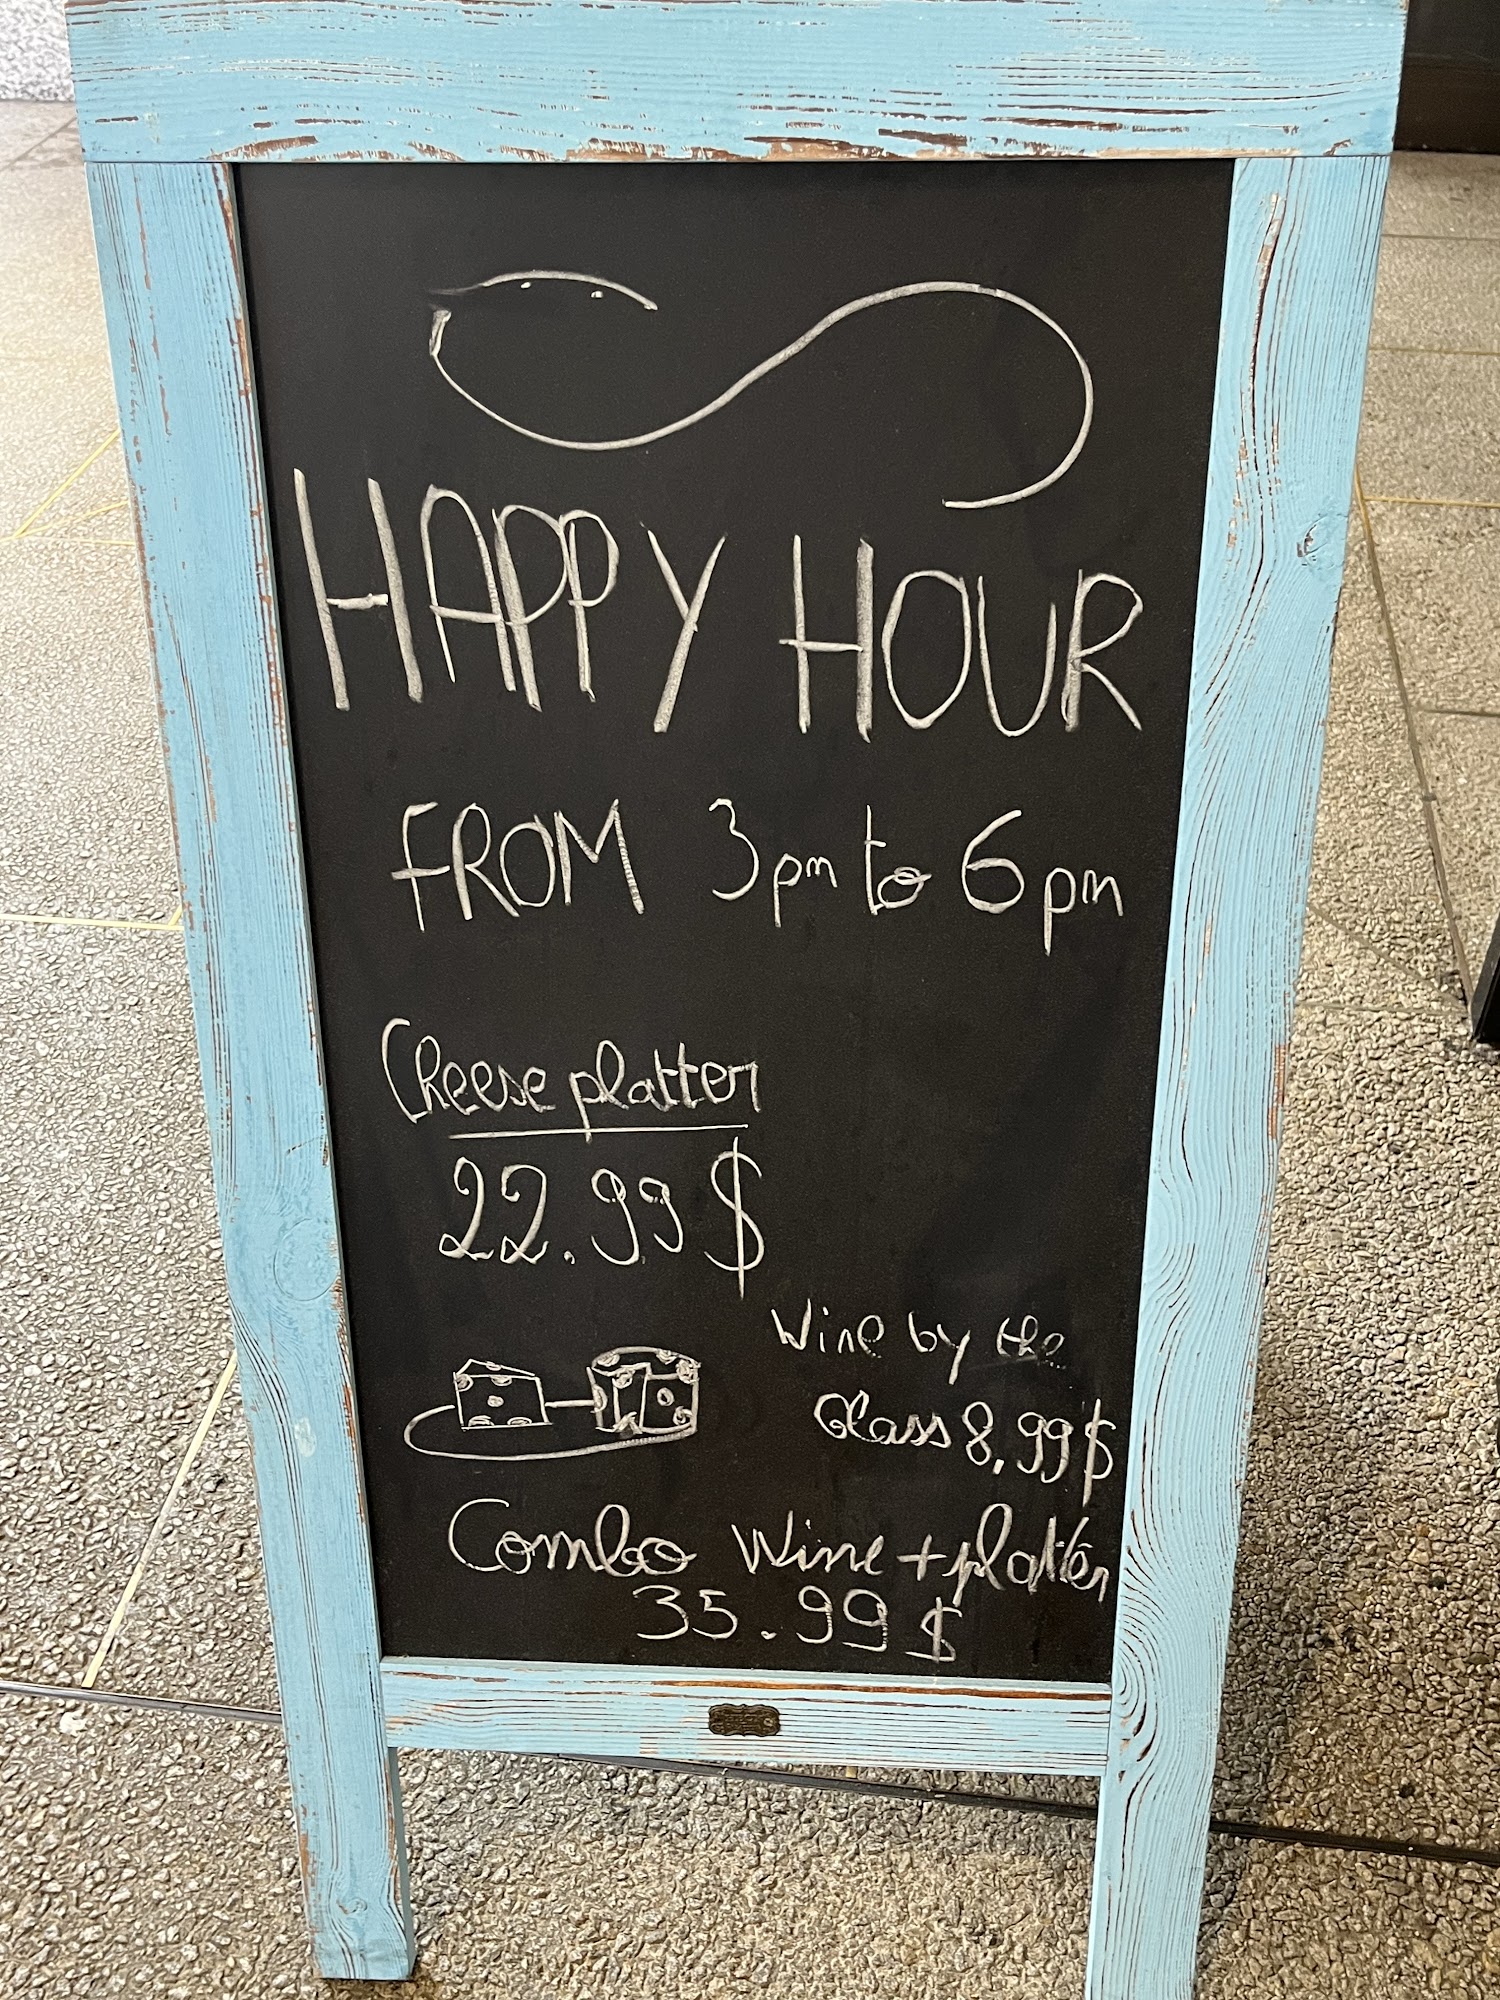 HAPPY HOUR
FROM 3pm to 6pm
Cheese platter
22.99 $
Wine by the
Glass 8,99 $
Combo Wine + platter
35.99 $